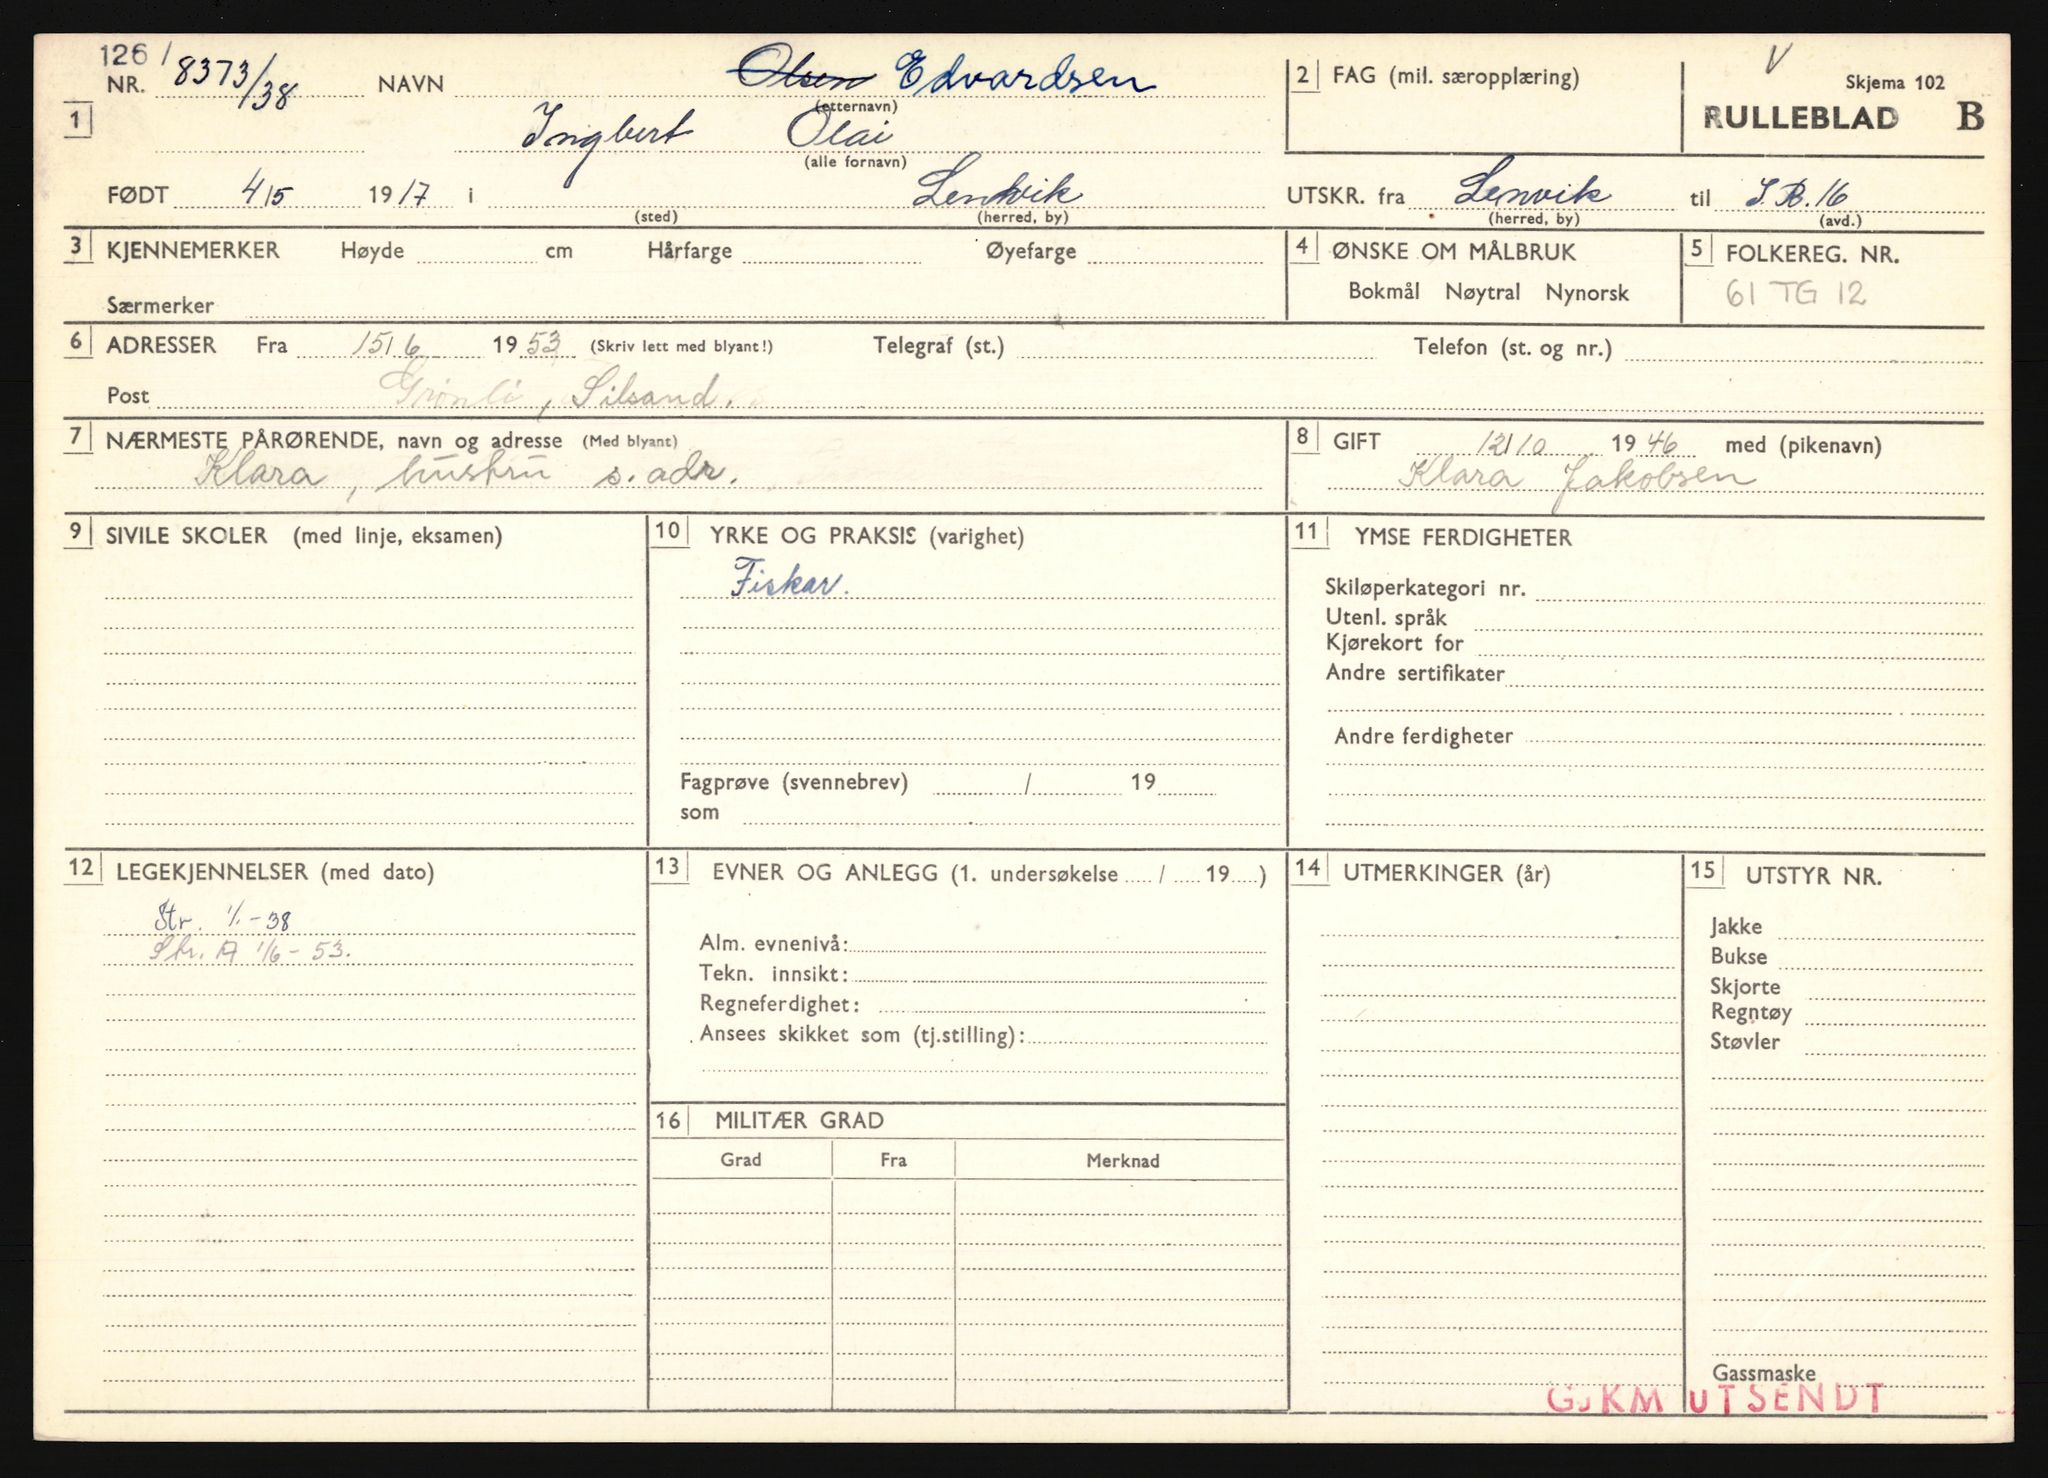 126 / V
NR. 8373/38 NAVN Olsen Edvardsen 2 FAG (mil. særopplæring) Skjema 102
(etternavn) RULLEBLAD B
1 Ingbert Olai
(alle fornavn)
FØDT 4/5 1917 i Lenvik UTSKR. fra Lenvik til I.R.16
(sted) (herred, by) (herred, by) (avd.)
3 KJENNEMERKER Høyde cm Hårfarge Øyefarge 4 ØNSKE OM MÅLBRUK 5 FOLKEREG. NR.
Særmerker Bokmål Nøytral Nynorsk 61 TG 12
6 ADRESSER Fra 15/6 1953 (Skriv lett med blyant!) Telegraf (st.) Telefon (st. og nr.)
Post Grønli, Silsand.
7 NÆRMESTE PÅRØRENDE, navn og adresse (Med blyant) 8 GIFT 12/10 1946 med (pikenavn)
Klara, hustru s. adr. Klara Jakobsen
9 SIVILE SKOLER (med linje, eksamen) 10 YRKE OG PRAKSIS (varighet) 11 YMSE FERDIGHETER
Fiskar. Skiløperkategori nr.
Utenl. språk
Kjørekort for
Andre sertifikater
Andre ferdigheter
Fagprøve (svennebrev) / 19
som
12 LEGEKJENNELSER (med dato) 13 EVNER OG ANLEGG (1. undersøkelse / 19 ) 14 UTMERKINGER (år) 15 UTSTYR NR.
Str. 1/1-38 Jakke
Str. A 1/6-53. Alm. evnenivå: Bukse
Tekn. innsikt: Skjorte
Regneferdighet: Regntøy
Ansees skikket som (tj.stilling): Støvler
16 MILITÆR GRAD
Grad Fra Merknad
Gassmaske
GJKM UTSENDT